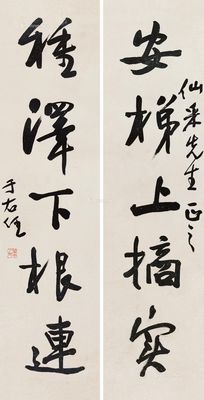 安梯上摘实
仙采先生正之
種澤下根連
于右任